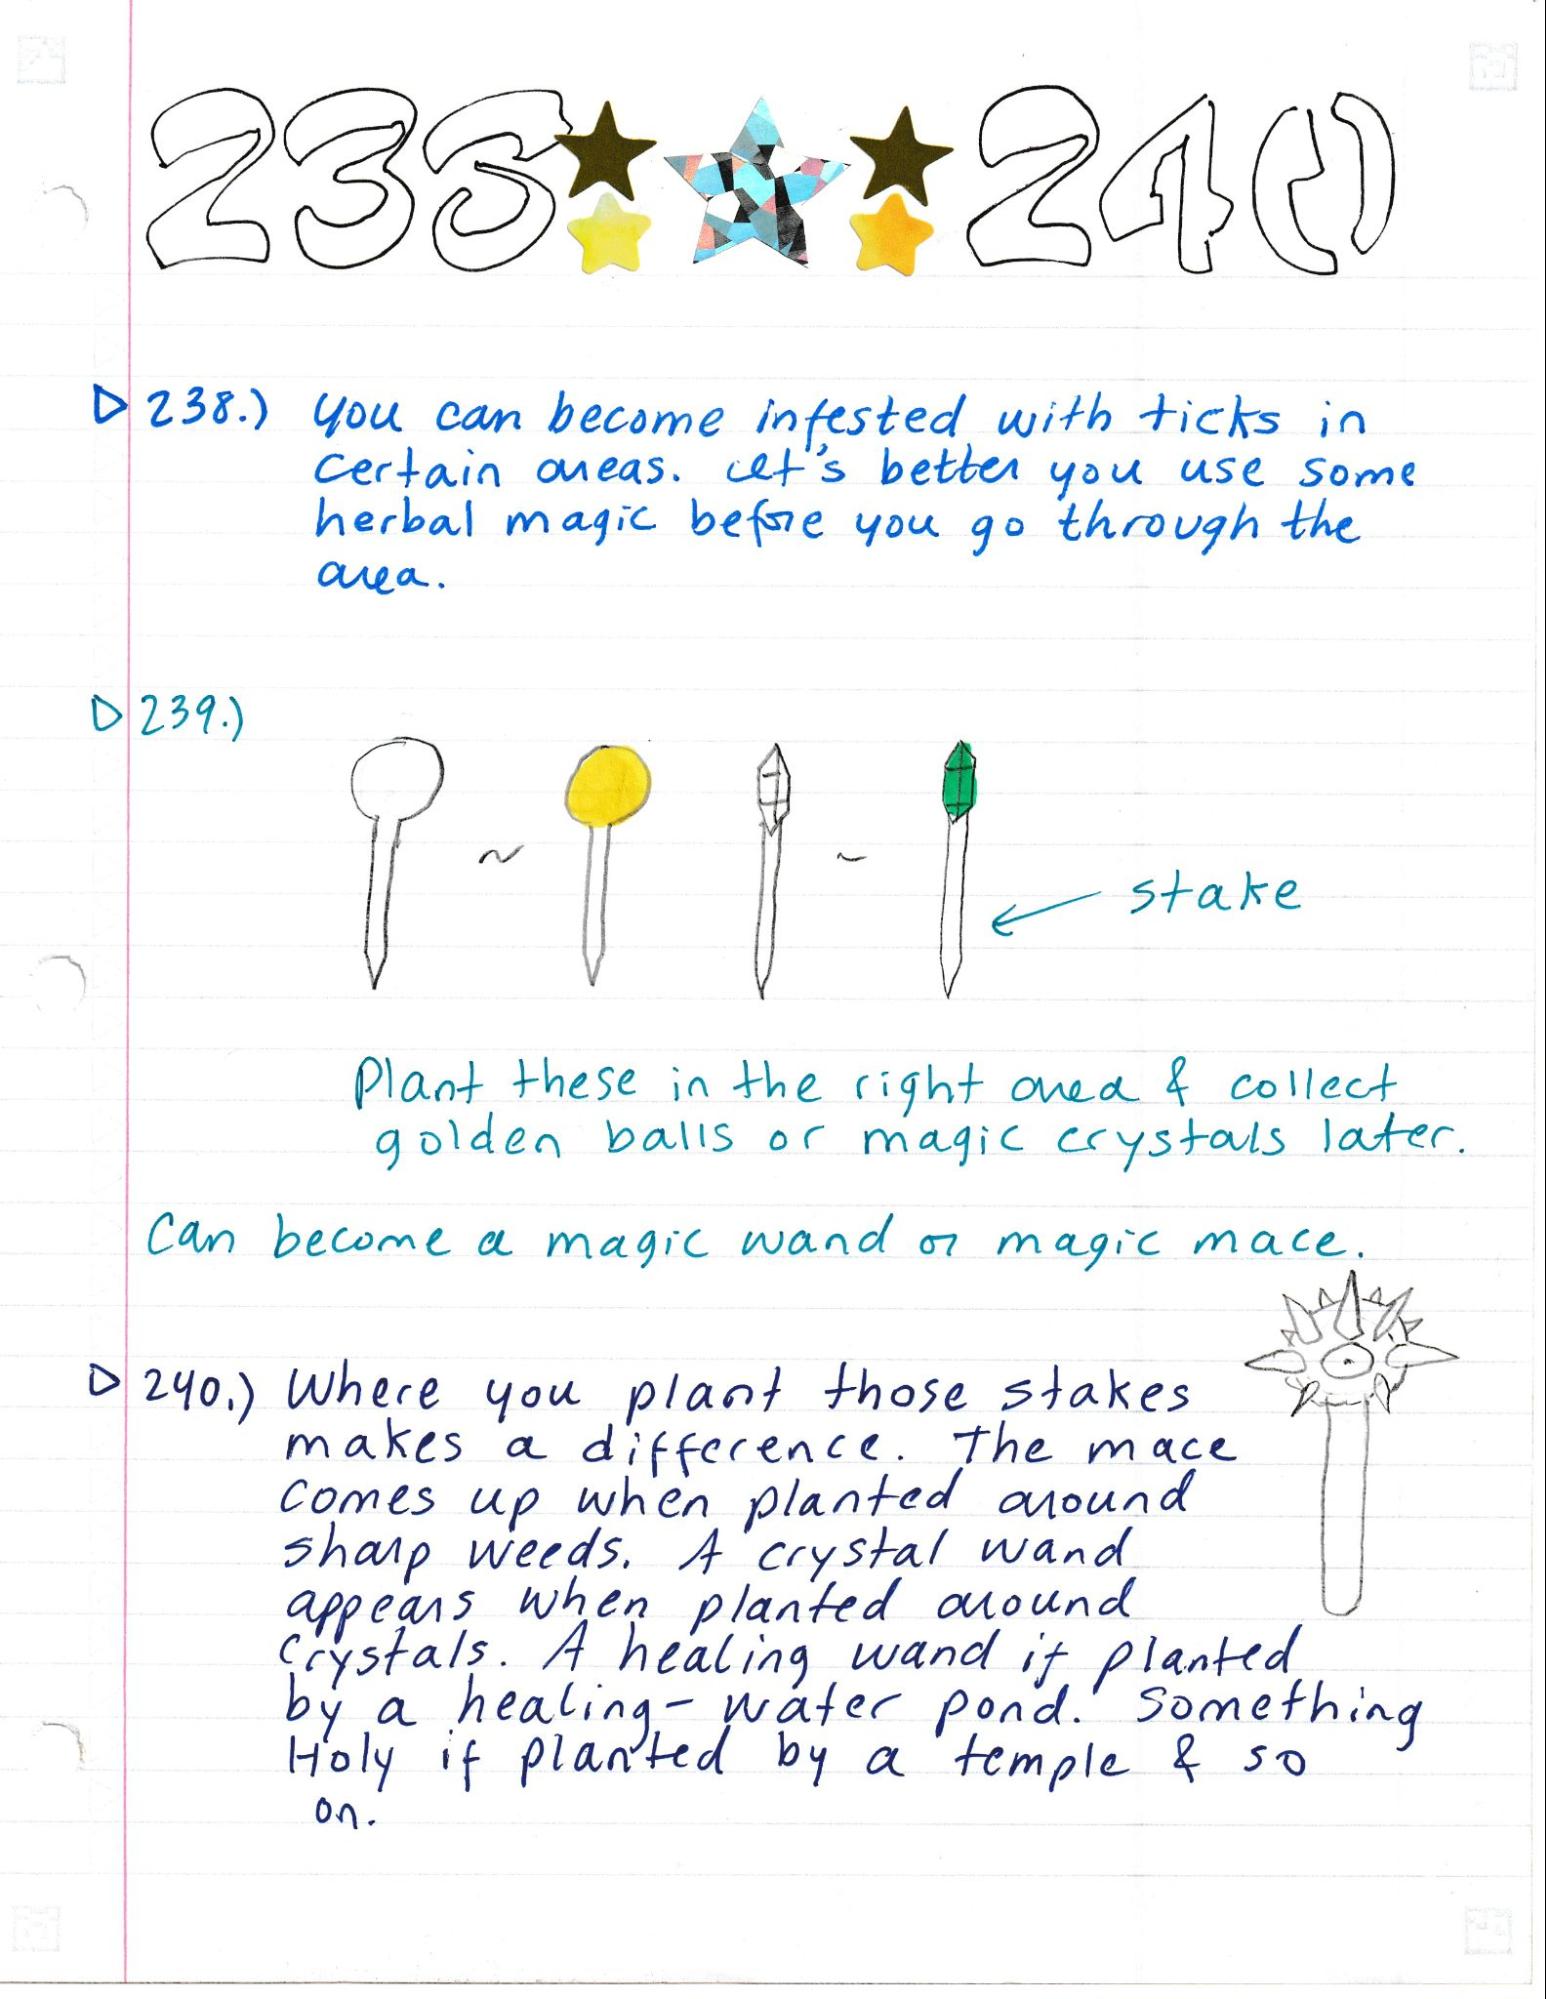 238 240
238.) You can become infested with ticks in
certain areas. It's better you use some
herbal magic before you go through the
area.
239.)
~ ~
stake
Plant these in the right area & collect
golden balls or magic crystals later.
Can become a magic wand or magic mace.
240.) Where you plant those stakes
makes a difference. The mace
comes up when planted around
sharp weeds. A crystal wand
appears when planted around
crystals. A healing wand if planted
by a healing-water pond. Something
Holy if planted by a temple & so
on.